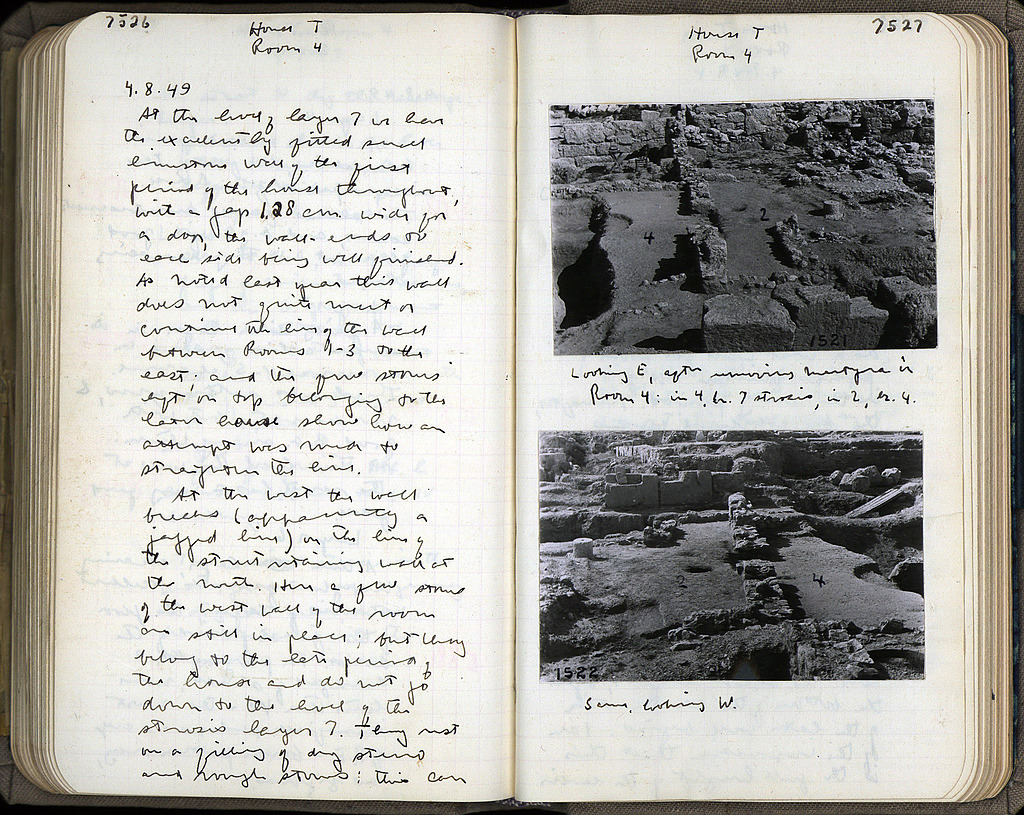 7526
House T
Room 4
4.8.49
At the level of layer 7 we have
the excellently fitted small
limestone wall of the first
period of the house throughout,
with a gap 1.28 cm wide for
a door, the wall-ends to
each side being well finished.
As noted last year this wall
does not quite meet or
continue the line of the wall
between Rooms 1-3 to the
east, and the few stones
left on top belonging to the
later house show how an
attempt was made to
straighten the line.
At the west the wall
breaks (apparently a
jagged line) on the line of
the street retaining wall at
the north. Here a few stones
of the west wall of the room
are still in place; but they
belong to the late period of
the house and do not go
down to the level of the
strosis layer 7. They rest
on a filling of dug stereo
and rough stones: this can
7527
House T
Room 4
4
2
1521
Looking E, after removing martyra in
Room 4: in 4, la. 7 strosis, in 2, la. 4.
2
4
1522
Same, looking W.